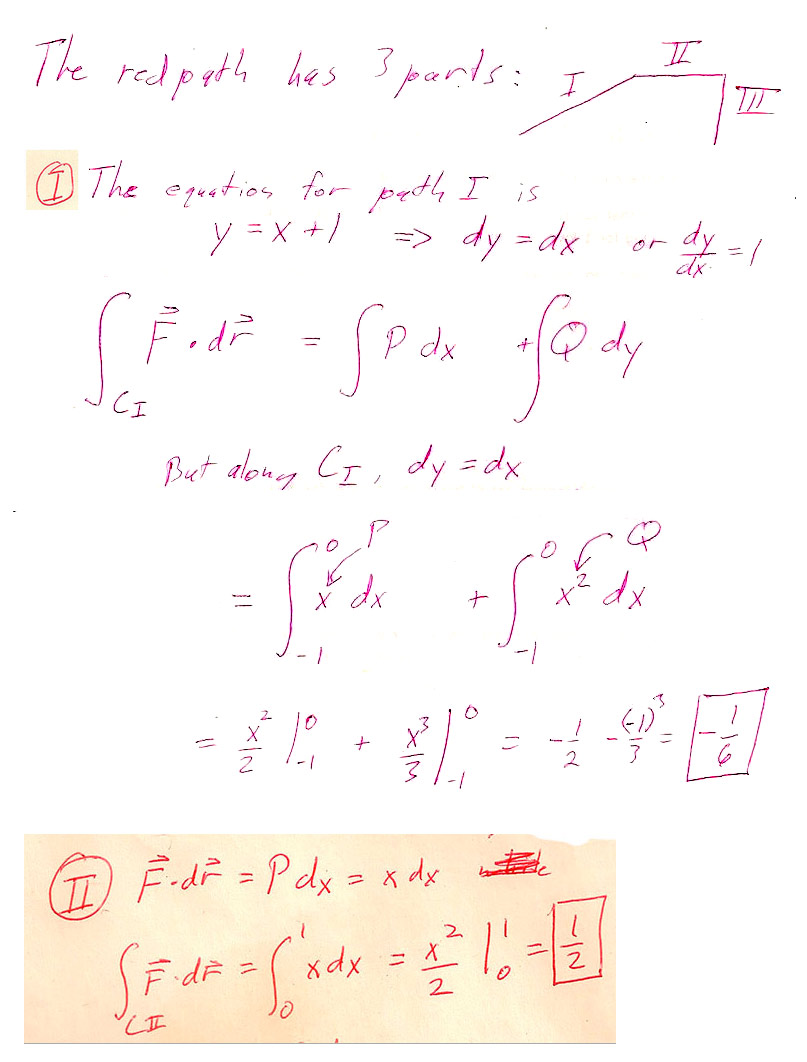 The red path has 3 parts: I II III
Ⓘ The equation for path I is
y = x + 1 => dy = dx or dy/dx = 1
∫_{C_I} F⃗ · dr⃗ = ∫ P dx + ∫ Q dy
But along C_I, dy = dx
P Q
= ∫_{-1}^{0} x dx + ∫_{-1}^{0} x² dx
= x²/2 |_{-1}^{0} + x³/3 |_{-1}^{0} = -1/2 - (-1)³/3 = -1/6
II F⃗ · dr⃗ = P dx = x dx
∫_{C II} F⃗ · dr⃗ = ∫_{0}^{1} x dx = x²/2 |_{0}^{1} = 1/2